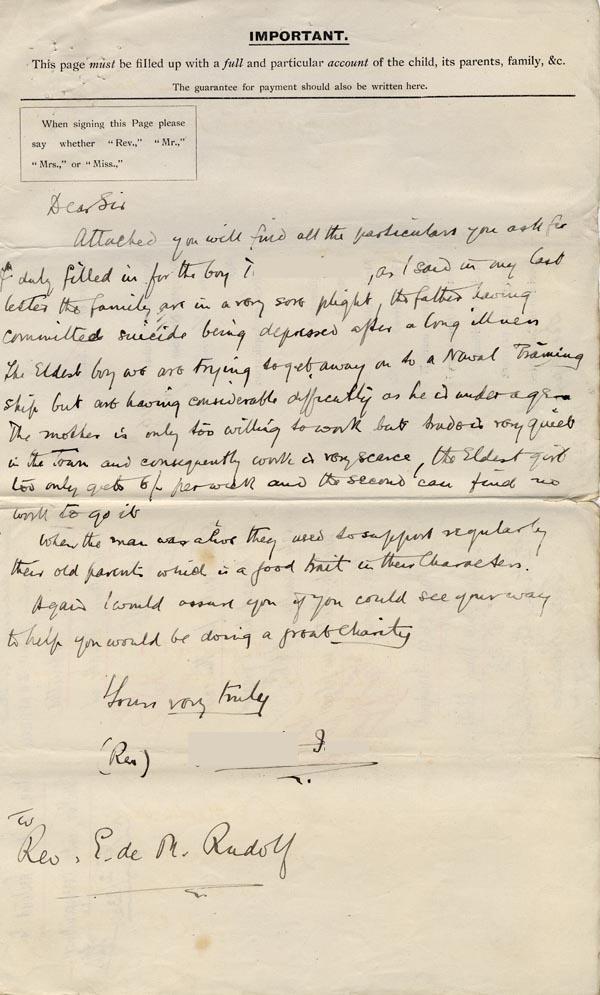 IMPORTANT.
This page must be filled up with a full and particular account of the child, its parents, family, &c.
The guarantee for payment should also be written here.
When signing this Page please
say whether "Rev.," "Mr.,"
"Mrs.," or "Miss.,"
Dear Sir
Attached you will find all the particulars you ask for
duly filled in for the boy T. , as I said in my last
letter the family are in a very sore plight, the father having
committed suicide being depressed after a long illness
The Eldest boy we are trying to get away on to a Naval Training
ship but are having considerable difficulty as he is under age
The mother is only too willing to work but trade is very quiet
in the Town and consequently work is very scarce, the Eldest girl
too only gets 6/- per week and the second can find no
work to go to
When the man was alive they used to support regularly
their old parents which is a good trait in their Characters.
Again I would assure you if you could see your way
to help you would be doing a great Charity
Yours very truly
(Rev) J.
To
Rev. E. de M. Rudolf